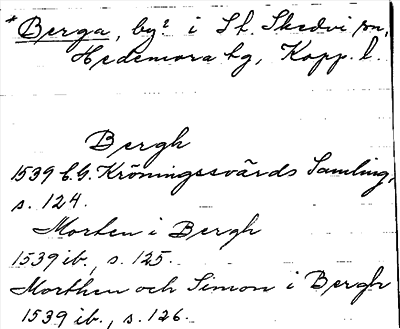 *Berga, by² i St. Skedvi sn,
Hedemora tg, Kopp. l.
Bergh
1539 C.G. Kröningssvärds Samling,
s. 124.
Morten i Bergh
1539 ib., s. 125.
Morthen och Simon i Bergh
1539 ib., s. 126.